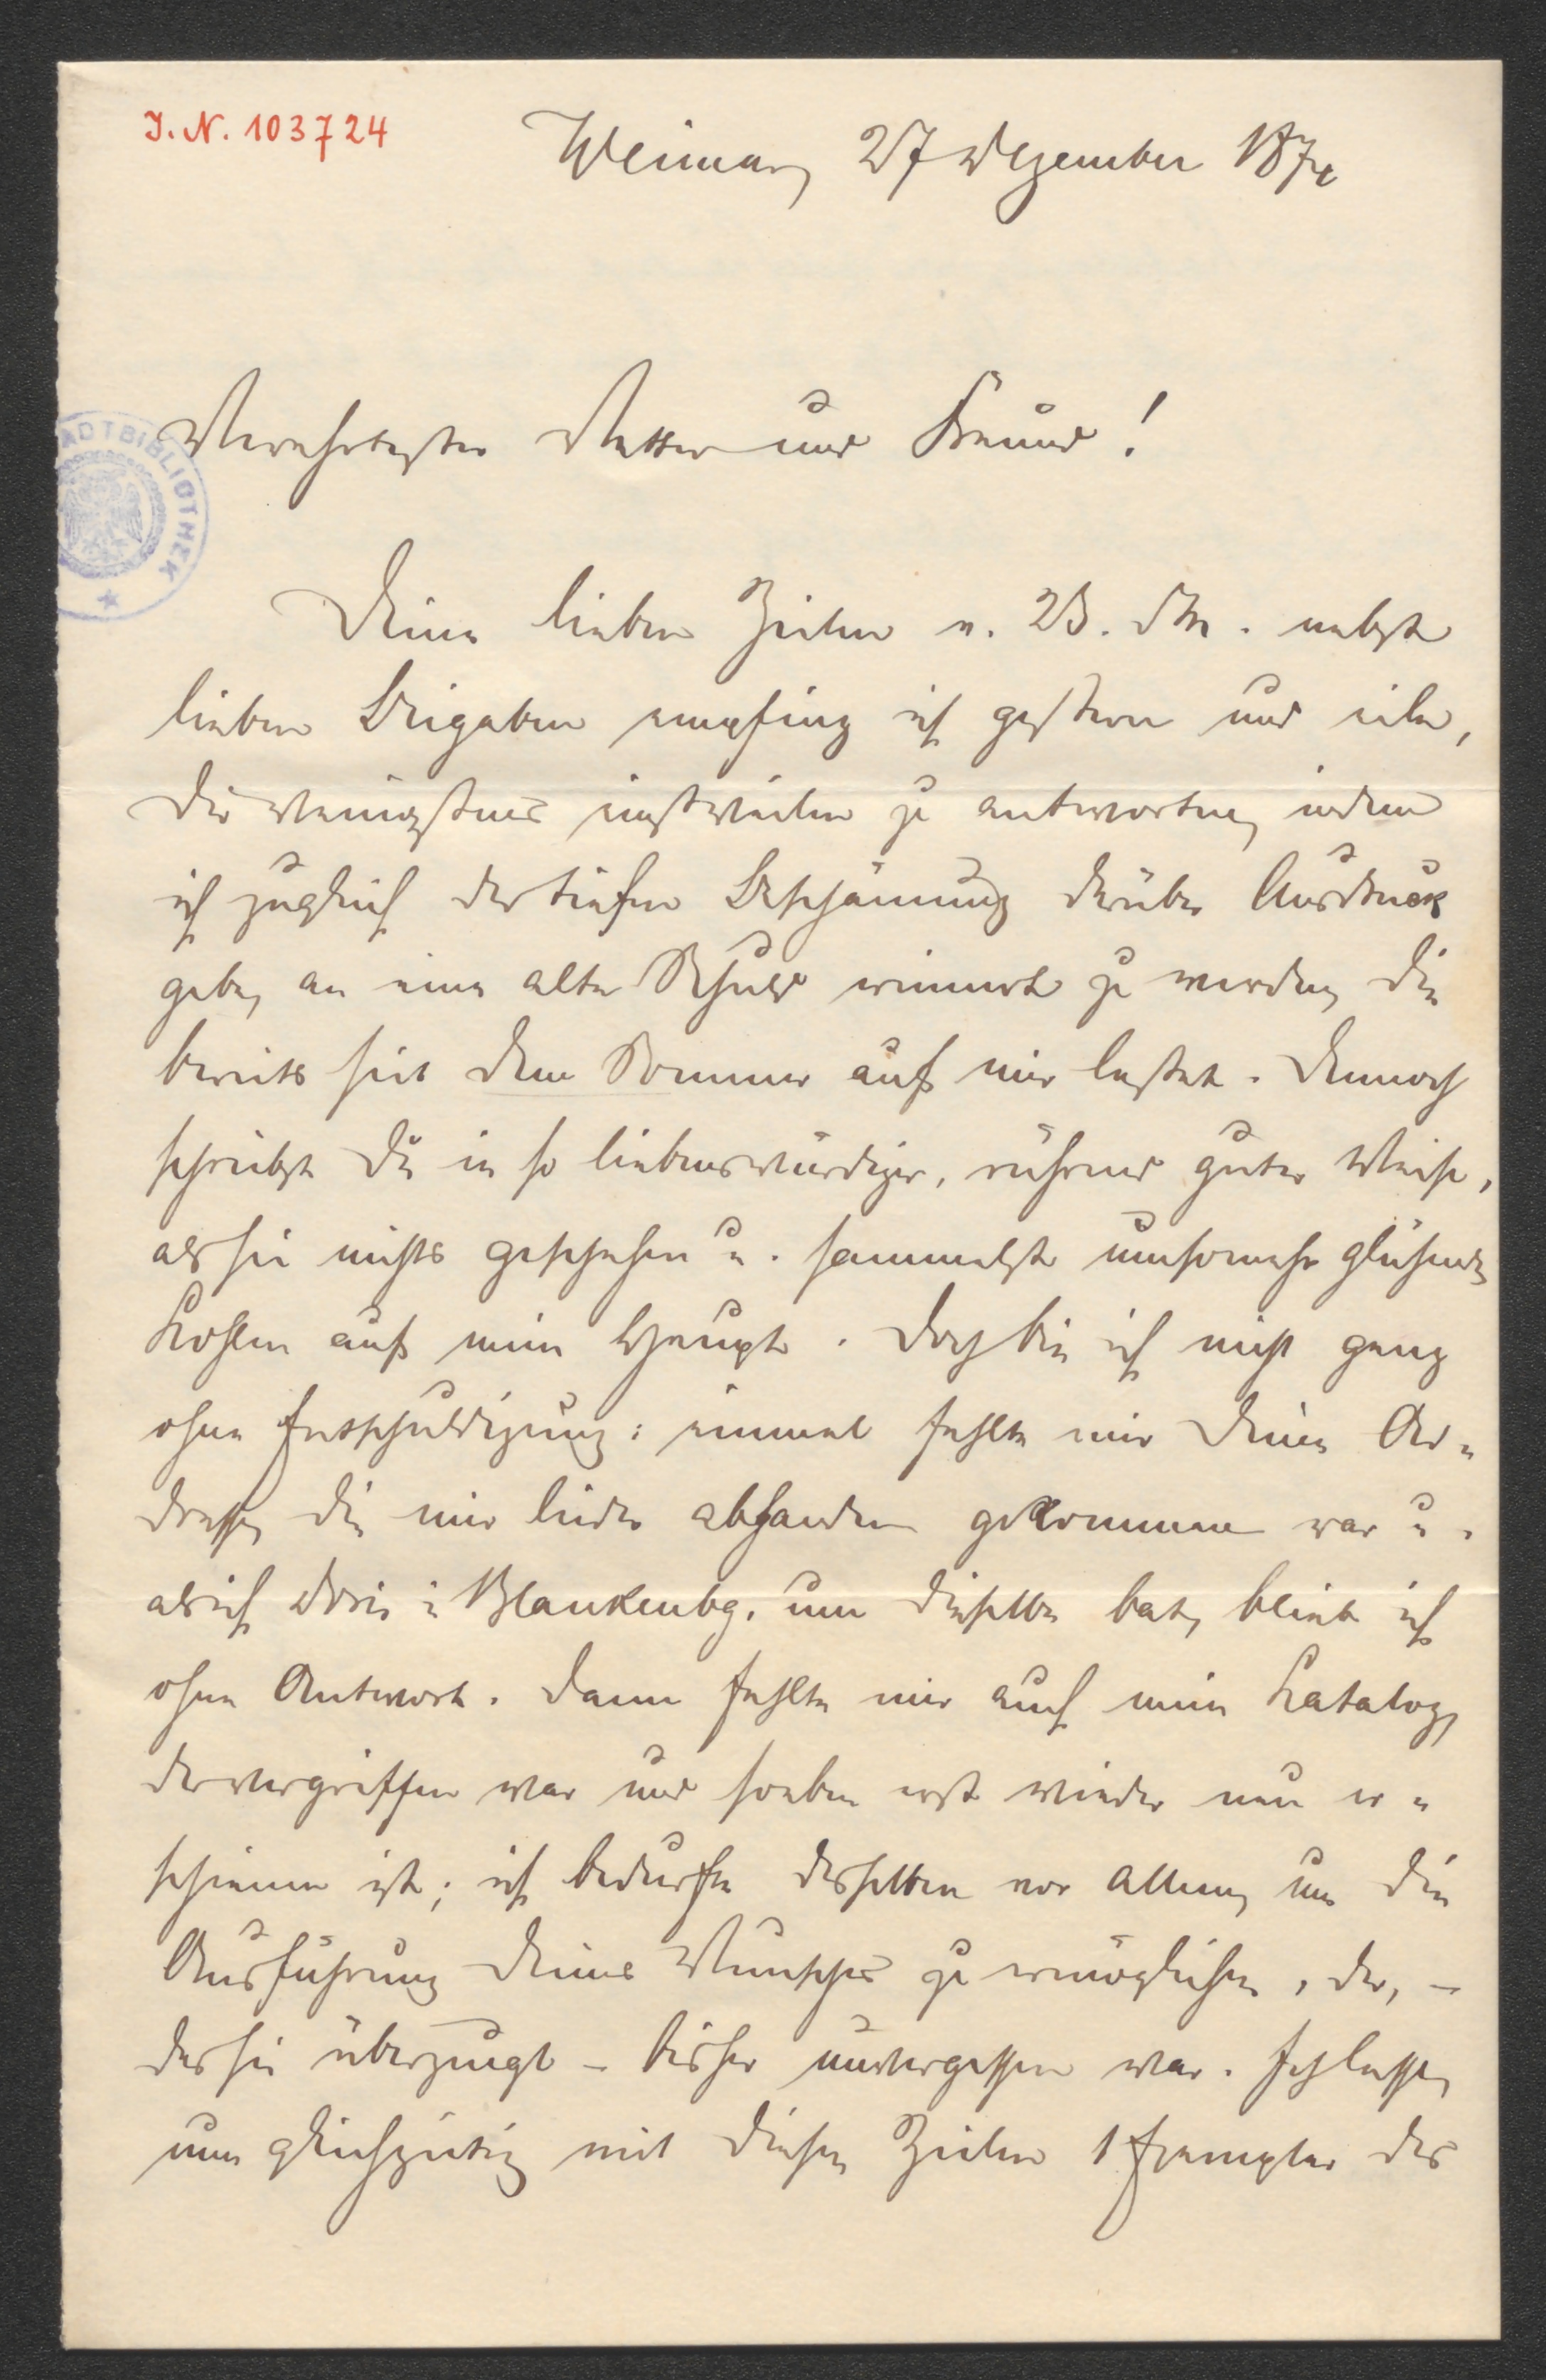 I. N. 103724
Weimar, 27 Dezember 187
ADTBIBLIOTHEK
Verehrtester Vetter und Freund!
Deine lieben Zeilen v. 23. d. M. nebst
lieben Beigaben empfing ich gestern und eile,
Dir wenigstens einstweilen zu antworten, indem
ich zugleich der tiefen Beschämung darüber Ausdruck
gebe, an eine alte Schuld erinnert zu werden, die
bereits seit dem Sommer auf mir lastet. Dennoch
schreibst Du in so liebenswürdiger, rührend guter Weise,
als sei nichts geschehen u. sammelst umsomehr glühende
Kohlen auf mein Haupt. Doch bin ich nicht ganz
ohne Entschuldigung: einmal fehlte mir Deine Ad-
dresse, die mir leider abhanden gekommen war u.
als ich Doris i Blankenbg. um dieselbe bat, blieb ich
ohne Antwort. Dann fehlte mir auch mein Katalog,
der vergriffen war und soeben erst wieder neu er-
schienen ist; ich bedurfte desselben vor Allem, um die
Ausführung Deines Wunsches zu ermöglichen, der, -
des sei überzeugt - bisher unvergessen war. Ich lasse
nun gleichzeitig mit diesen Zeilen 1 Exemplar des